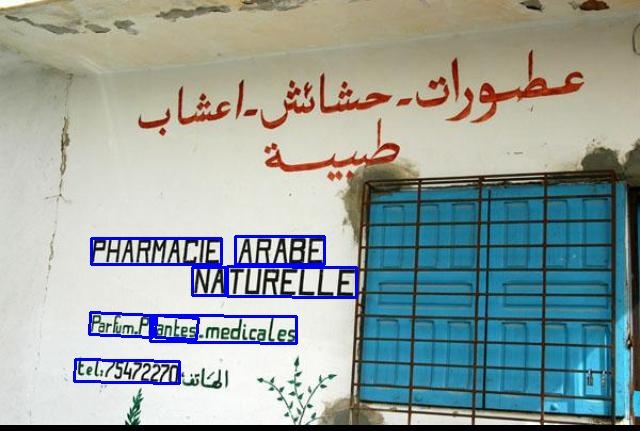 عطورات - حشائش - اعشاب
طبية
PHARMACIE ARABE
NATURELLE
Parfum.Plantes.medicales
tel:75472270 الهاتف